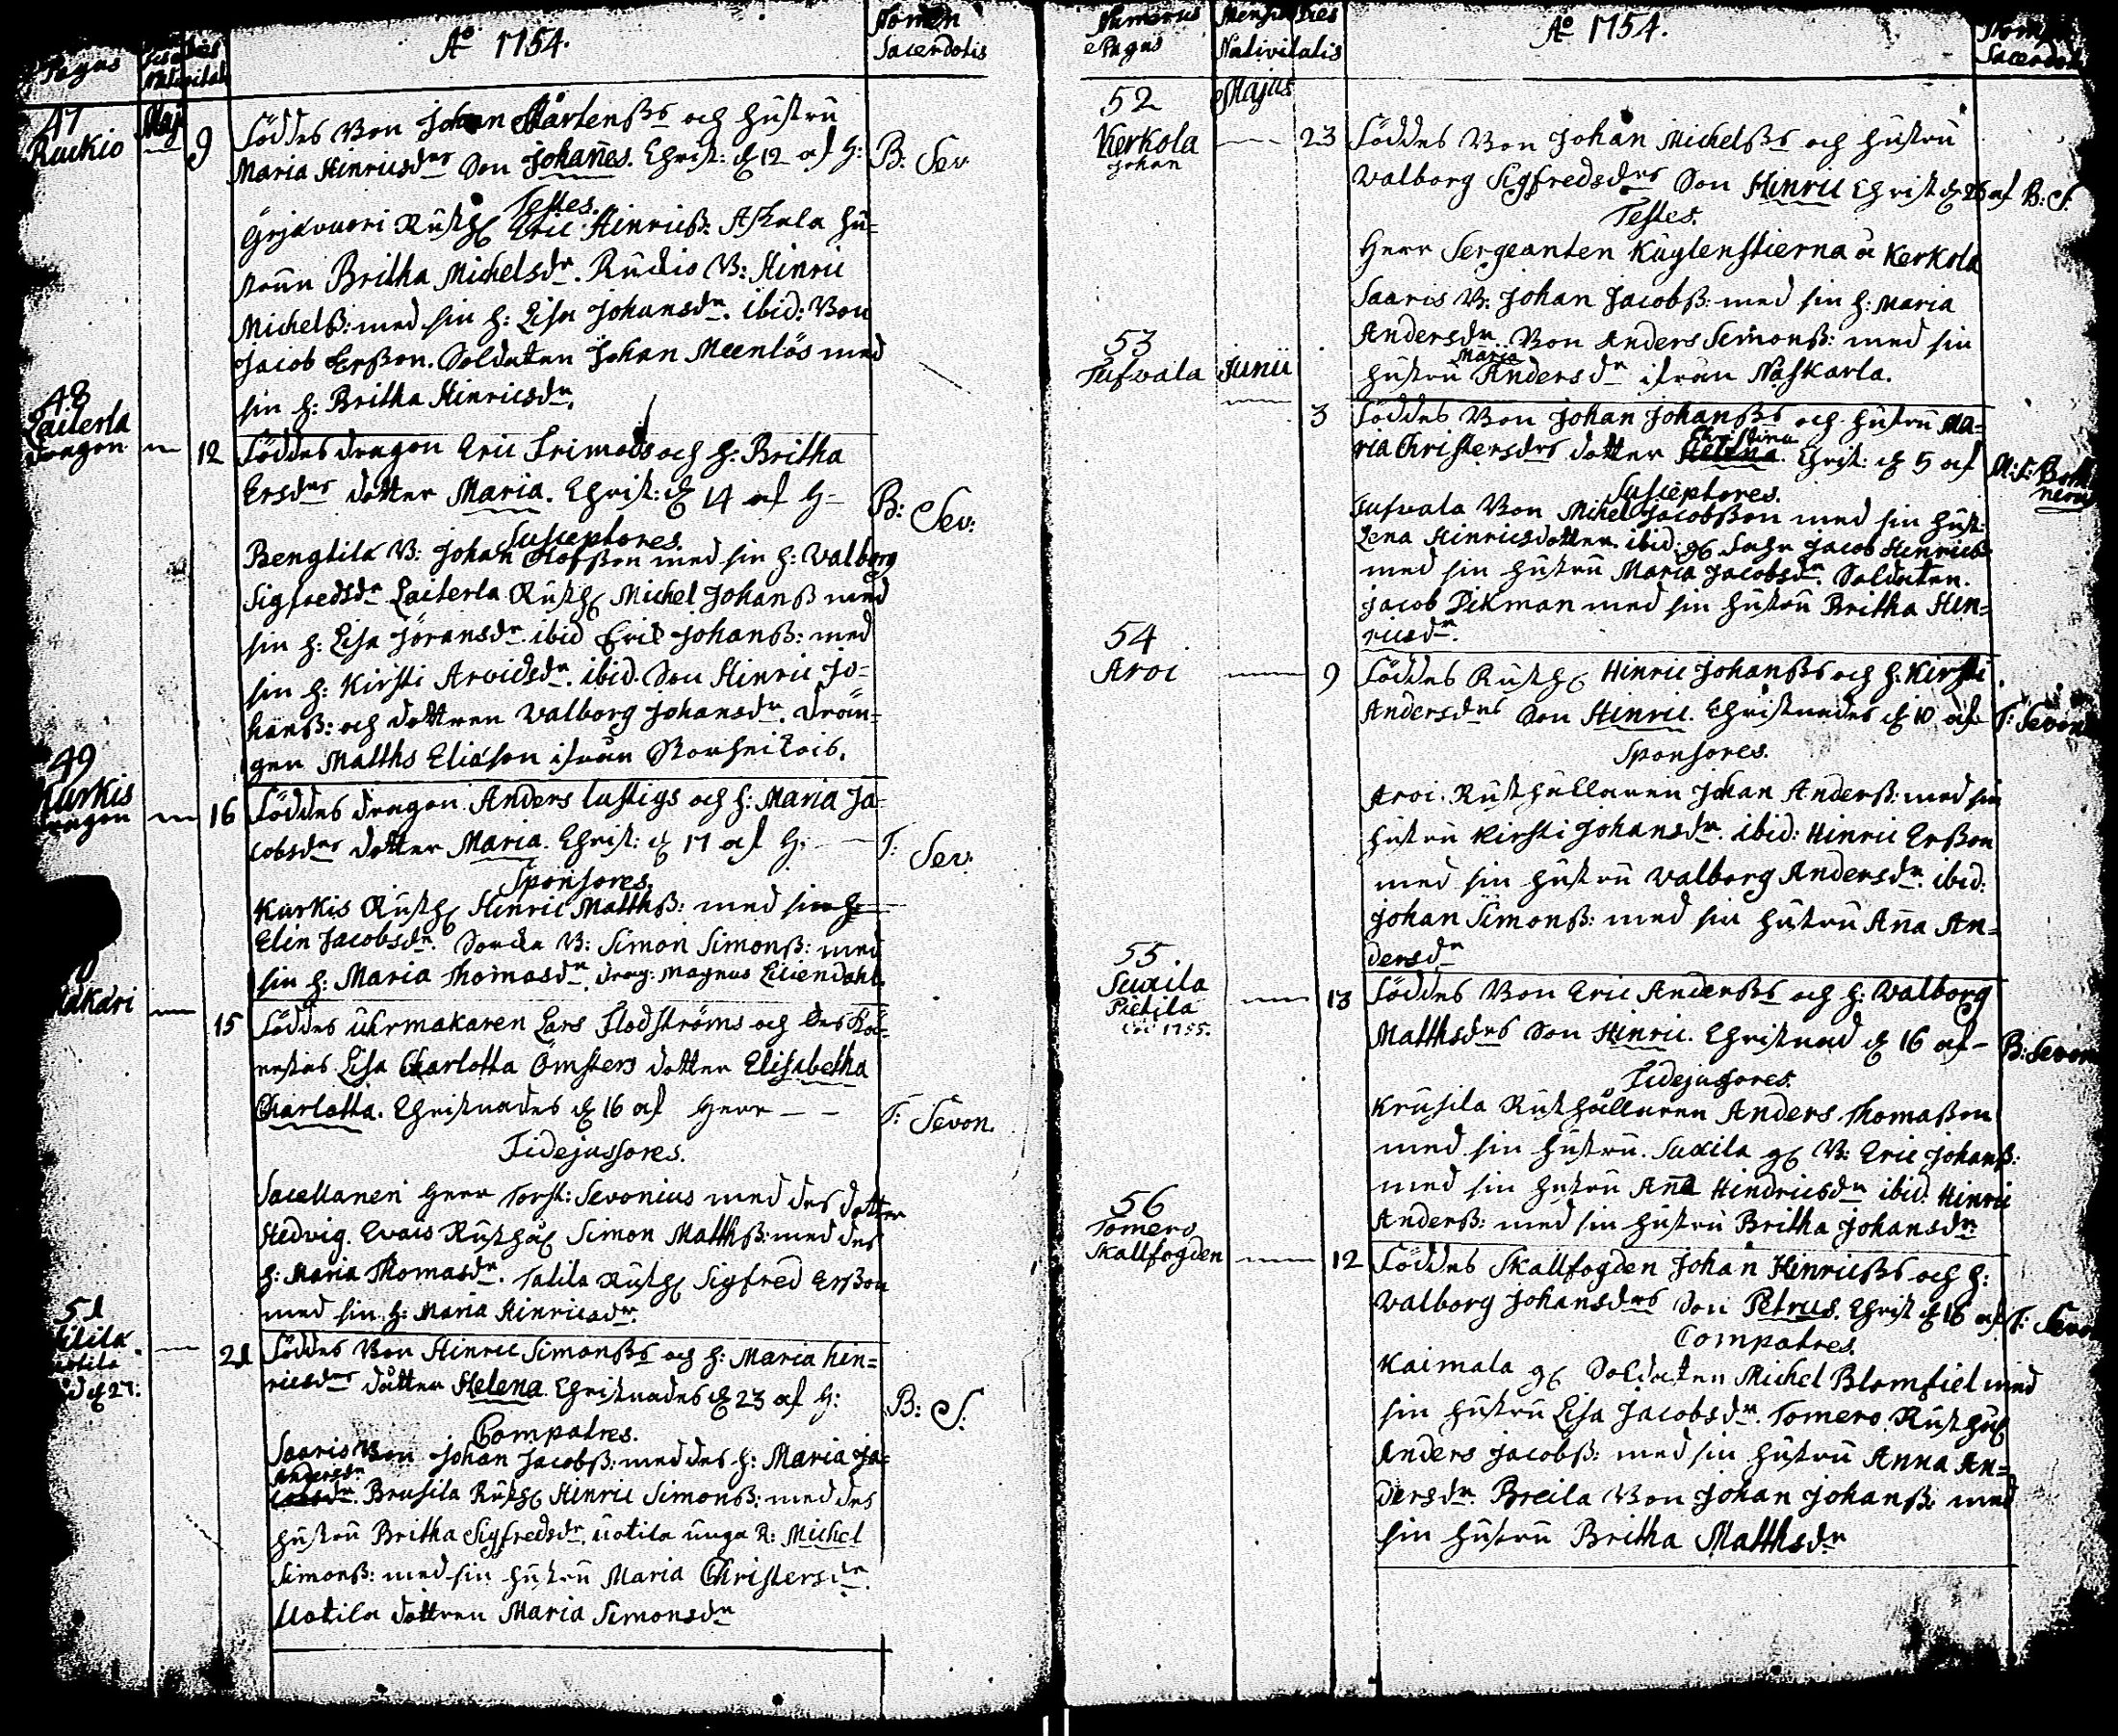 Pagus
Nativitatis
Aº 1754.
Nomen
Sacerdotis
47
Ruckio
Maj
9
Föddes Bon Johan Mårtenßs och hustru
Maria Hinricsdrs Son Johañes. Christ: d 12 af H:
B: Sev
Testes.
Erjävuori Rusth Eric Hinricß. Askala hu=
strun Britha Michelsdr. Ruckio B: Hinric
Michelß: med sin h: Lisa Johansdr. ibid: Bon
Jacob Erßon. Soldaten Johan Meenlös med
sin h: Britha Hinricsdr.
48
Laiterla
dragon
12
Föddes dragon Eric Frimods och h: Britha
Ersdrs dotter Maria. Christ: d 14 af H-
B: Sev:
Susceptores.
Bengtilä B: Johan Olofßon med sin h: Valborg
Sigfredsdr Laiterla Rusth Michel Johanß med
sin h: Lisa Jöransdr. ibid Eric Johanß: med
sin h: Kirsti Arvidsdr. ibid. Son Hinric Jo=
hanß: och dottren Valborg Johansdr. Drän=
gen Matths Eliäson ifrån
49
Kurkis
dragon
16
Föddes dragon Anders Lustigs och h: Maria Ja=
cobsdrs dotter Maria. Christ: d 17 af H:
T: Sev.
Sponsores.
Kurkis Rusth Hinric Matthß: med sin h:
Elin Jacobsdr. B: Simon Simonß: med
sin h: Maria Thomasdr. drag: Magnus Liliendahl.
15
Föddes Uhrmakaren Lars Flodströms och des Kä=
restas Lisa Charlotta Ömsters dotter Elisabetha
Charlotta. Christnades d 16 af Herr - -
T: Sevon.
Fidejussores.
Sacellanen Herr Torst: Sevonius med des dotter
Hedvig. Evois Rusthål Simon Matthß: med des
h: Maria Thomasdr. Talila Rusth Sigfred Erßon
med sin h: Maria Hinricsdr.
51
21
Föddes Bon Hinric Simonßs och h: Maria Hin=
ricsdrs dåtter Helena. Christnades d 23 af H:
B: S:
Compatres.
Saaris Bon Johan Jacobß: med des h: Maria Ja=
Andersdr
cobsdr. Brusila Rusth Hinric Simonß: med des
hustru Britha Sigfredsdr. Uotila unga R: Michel
Simonß: med sin hustru Maria Christersdr.
Uotila dottren Maria Simonsdr
Numerus
Pagus
Mensis Dies
Nativitatis
Aº 1754.
Nomen
Sacerdotis
52
Kerkola
Johan
Majus
23
Föddes Bon Johan Michelßs och hustru
Valborg Sigfredsdrs Son Hinric Christ d 26 af
B: S.
Testes.
Herr Sergeanten Kuglenstierna å Kerkola
Saaris B: Johan Jacobß: med sin h: Maria
Andersdr. Bon Anders Simonß: med sin
Maria
hustru Andersdr ifrån Naskarla.
53
Tufvala
Junii
3
Föddes Bon Johan Johanßs och hustru Ma=
Christina
ria Christersdrs dotter Helena. Christ: d 5 af
Susceptores.
Tufvala Bon Michel Jacobßon med sin hust:
Lena Hinricsdotter. ibid: Jacob Hinricß
med sin hustru Maria Jacobsdr. Soldaten
Jacob Dikman med sin hustru Britha Hin=
ricsdr.
54
Aroi
9
Föddes Rusth Hinric Johanßs och h: Kirsti
Andersdrs Son Hinric. Christnades d 10 af
T: Sevon
Sponsores.
Aroi Rusthållaren Johan Anderß: med sin
hustru Kirsti Johansdr. ibid: Hinric Erßon
med sin hustru Valborg Andersdr. ibid:
Johan Simonß: med sin hustru Aña An=
dersdr
55.
Suxila
Pietila
1755.
13
Föddes Bon Eric Anderßs och h: Valborg
Matthsdrs Son Hinric. Christnad d 16 af -
B: Sevon
Fidejussores.
Krusila Rusthållaren Anders Thomaßon
med sin hustru. Suxila B: Eric Johanß:
med sin hustru Aña Hindricsdr ibid. Hinric
Anderß: med sin hustru Britha Johansdr
56
Tomero
Skallfogden
12
Föddes Skallfogden Johan Hinricßs och h:
Valborg Johansdrs Son Petrus. Christ d 16 af
T: Sevon
Compatres.
Kaimala Soldaten Michel Blomfiel med
sin hustru Lisa Jacobsdr. Tomero Rusthål
Anders Jacobß: med sin hustru Anna An=
dersdr. Breila Bon Johan Johanß: med
sin hustru Britha Matthsdr